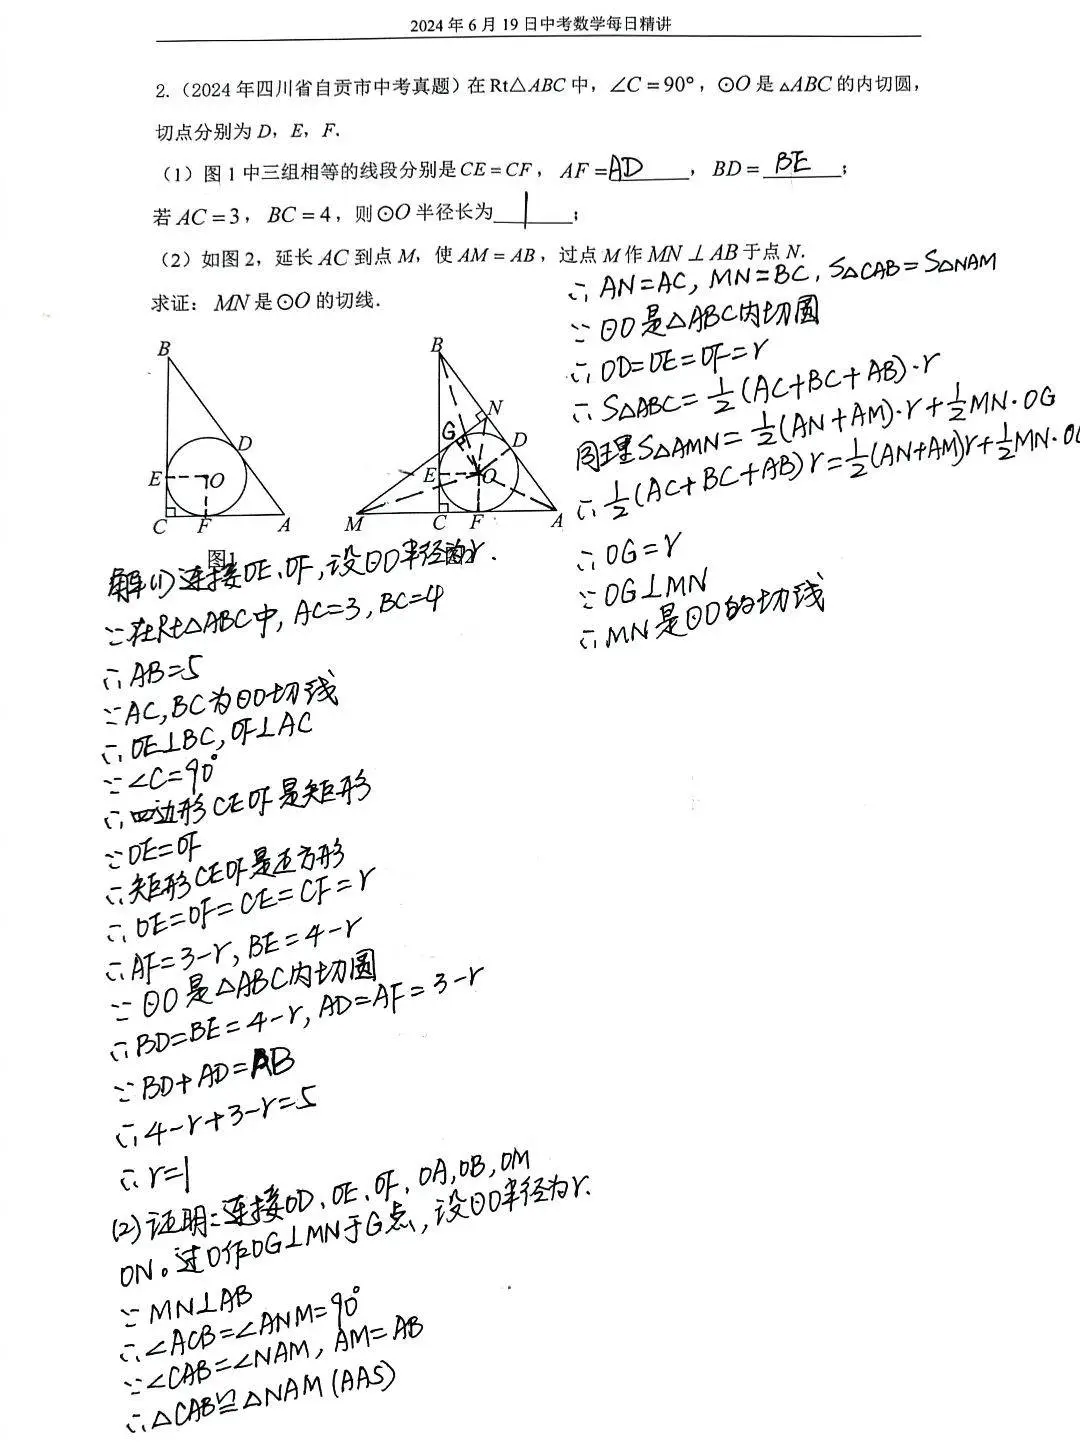 2024 年 6 月 19 日中考数学每日精讲
2.（2024 年四川省自贡市中考真题）在 Rt△ABC 中，∠C = 90°，⊙O 是 △ABC 的内切圆，
切点分别为 D，E，F.
（1）图 1 中三组相等的线段分别是 CE = CF，AF = AD，BD = BE；
若 AC = 3，BC = 4，则 ⊙O 半径长为 1；
（2）如图 2，延长 AC 到点 M，使 AM = AB，过点 M 作 MN ⊥ AB 于点 N.
求证：MN 是 ⊙O 的切线.
B
E
O
D
C
F
A
图1
B
N
G
D
E
O
M
C
F
A
解(1)连接OE、OF,设⊙O半径为r.
∵在Rt△ABC中, AC=3, BC=4
∴AB=5
∵AC, BC为⊙O切线
∴OE⊥BC, OF⊥AC
∵∠C=90°
∴四边形CEOF是矩形
∵OE=OF
∴矩形CEOF是正方形
∴OE=OF=CE=CF=r
∴AF=3-r, BE=4-r
∵⊙O是△ABC内切圆
∴BD=BE=4-r, AD=AF=3-r
∵BD+AD=AB
∴4-r+3-r=5
∴r=1
(2)证明:连接OD、OE、OF、OA,OB,OM
ON。过O作OG⊥MN于G点,设⊙O半径为r.
∵MN⊥AB
∴∠ACB=∠ANM=90°
∵∠CAB=∠NAM, AM=AB
∴△CAB≌△NAM(AAS)
∴AN=AC, MN=BC, S△CAB=S△NAM
∵⊙O是△ABC内切圆
∴OD=OE=OF=r
∴S△ABC=½(AC+BC+AB)·r
同理S△AMN=½(AN+AM)·r+½MN·OG
∴½(AC+BC+AB)r=½(AN+AM)r+½MN·OG
∴OG=r
∵OG⊥MN
∴MN是⊙O的切线